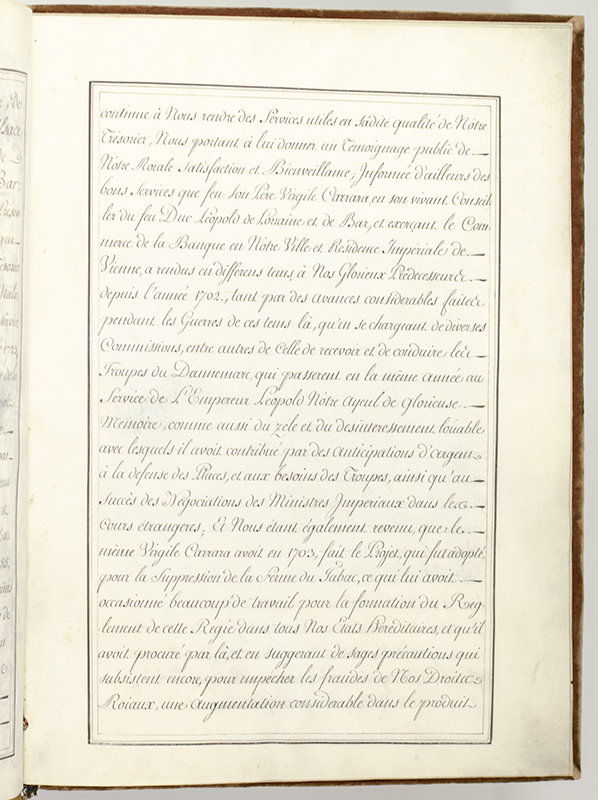 continue à Nous rendre des Services utiles en sadite qualité de Nôtre
Trésorier, Nous portant à lui donner un Temoignage public de
Nôtre Roiale Satisfaction et Bienveillance; Informée d'ailleurs des
bons Services que feu Son Pere Virgile Carrara, en son vivant Conseil
ler du feu Duc Léopold de Lorraine et de Bar, et exerçant le Com
merce de la Banque en Nôtre Ville et Residence Imperiale de
Vienne, a rendus en differens tems à Nos Glorieux Prédecesseurs
depuis l'année 1702., tant par des avances considerables faites
pendant les Guerres de ces tems là, qu'en se chargeant de diverses
Commissions, entre autres de Celle de recevoir et de conduire les
Troupes du Dannemarc, qui passerent en la même année au
Service de L'Empereur Léopold Nôtre Ayeul de Glorieuse
Memoire, comme aussi du zèle et du desinteressement loüable
avec lesquels il avoit contribué par des anticipations d'argent
à la defense des Places, et aux besoins des Troupes, ainsi qu'au
Succès des Négociations des Ministres Imperiaux dans les
Cours étrangeres; Et Nous étant également revenu, que le
même Virgile Carrara avoit en 1703. fait le Projet, qui fut adopté,
pour la Suppression de la Ferme du Tabac, ce qui lui avoit
occasionné beaucoup de travail pour la formation du Reg
lement de cette Regie dans tous Nos Etats Héréditaires, et qu'il
avoit procuré par là, et en suggerant de sages précautions qui
subsistent encore, pour empêcher les fraudes de Nos Droits
Roiaux, une augmentation considerable dans le produit